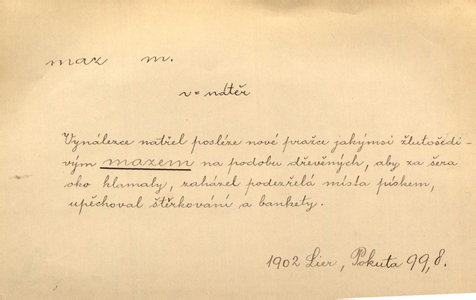 maz m.
v = ndtěr
Vynálezce natřel posléze nové pražce jakýmsi žlutošedi-
vým mazem na podobu dřevěných, aby za šera
oko klamaly, zaházel podezřelá místa pískem,
upěchoval štěrkování a bankety.
1902 Lier, Pokuta 99,8.